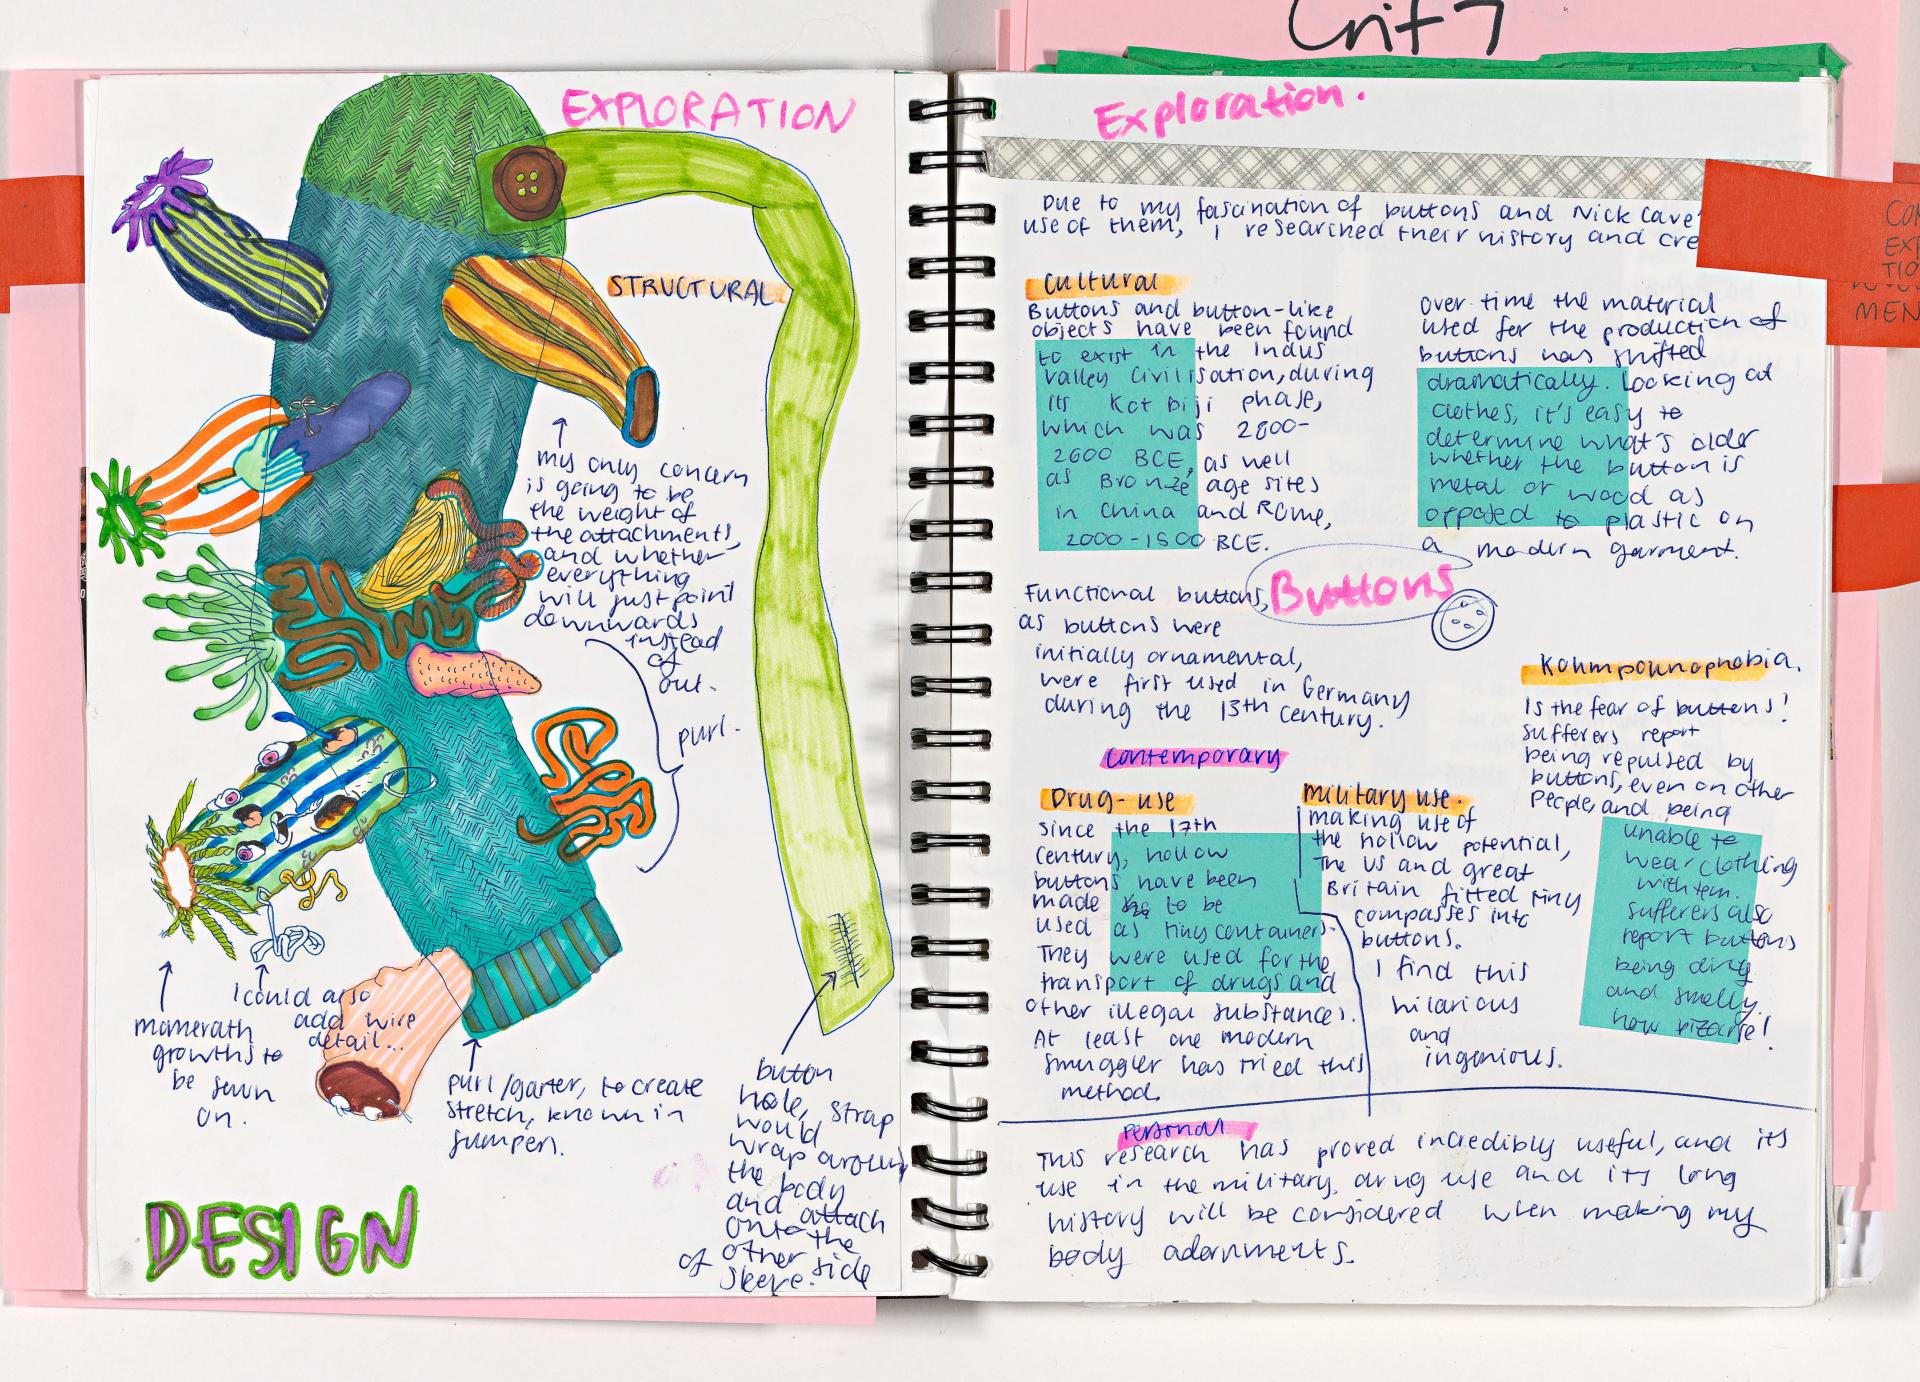 Crit 7
EXPLORATION
STRUCTURAL
my only concern
is going to be
the weight of
the attachments,
and whether
everything
will just point
downwards
instead
of
out.
purl.
I could also
add wire
detail...
mamerath
growths to
be sewn
on.
purl/garter, to create
stretch, known in
jumpers.
button
hole, strap
would
wrap around
the body
and attach
onto the
of other side
sleeve.
DESIGN
Exploration.
Due to my fascination of buttons and Nick Cave'
use of them, I researched their history and cre
CON
EXP
TIO
MEN
Cultural
Buttons and button-like
objects have been found
to exist in the Indus
Valley Civilisation, during
its Kot Diji phase,
which was 2800-
2600 BCE, as well
as Bronze age sites
in China and Rome,
2000-1500 BCE.
over time the material
used for the production of
buttons has shifted
dramatically. Looking at
clothes, it's easy to
determine what's older
whether the button is
metal or wood as
opposed to plastic on
a modern garment.
Buttons
Functional buttons,
as buttons were
initially ornamental,
were first used in Germany
during the 13th century.
Koumpounophobia.
Is the fear of buttons!
sufferers report
being repulsed by
buttons, even on other
people, and being
unable to
wear clothing
with tem.
sufferers also
report buttons
being dirty
and smelly.
how bizarre!
Contemporary
Drug-use
since the 17th
century, hollow
buttons have been
made to be
used as tiny containers.
They were used for the
transport of drugs and
other illegal substances.
At least one modern
smuggler has tried this
method.
military use.
making use of
the hollow potential,
the US and great
Britain fitted tiny
compasses into
buttons.
I find this
hilarious
and
ingenious.
personal
This research has proved incredibly useful, and its
use in the military, drug use and its long
history will be considered when making my
body adornments.